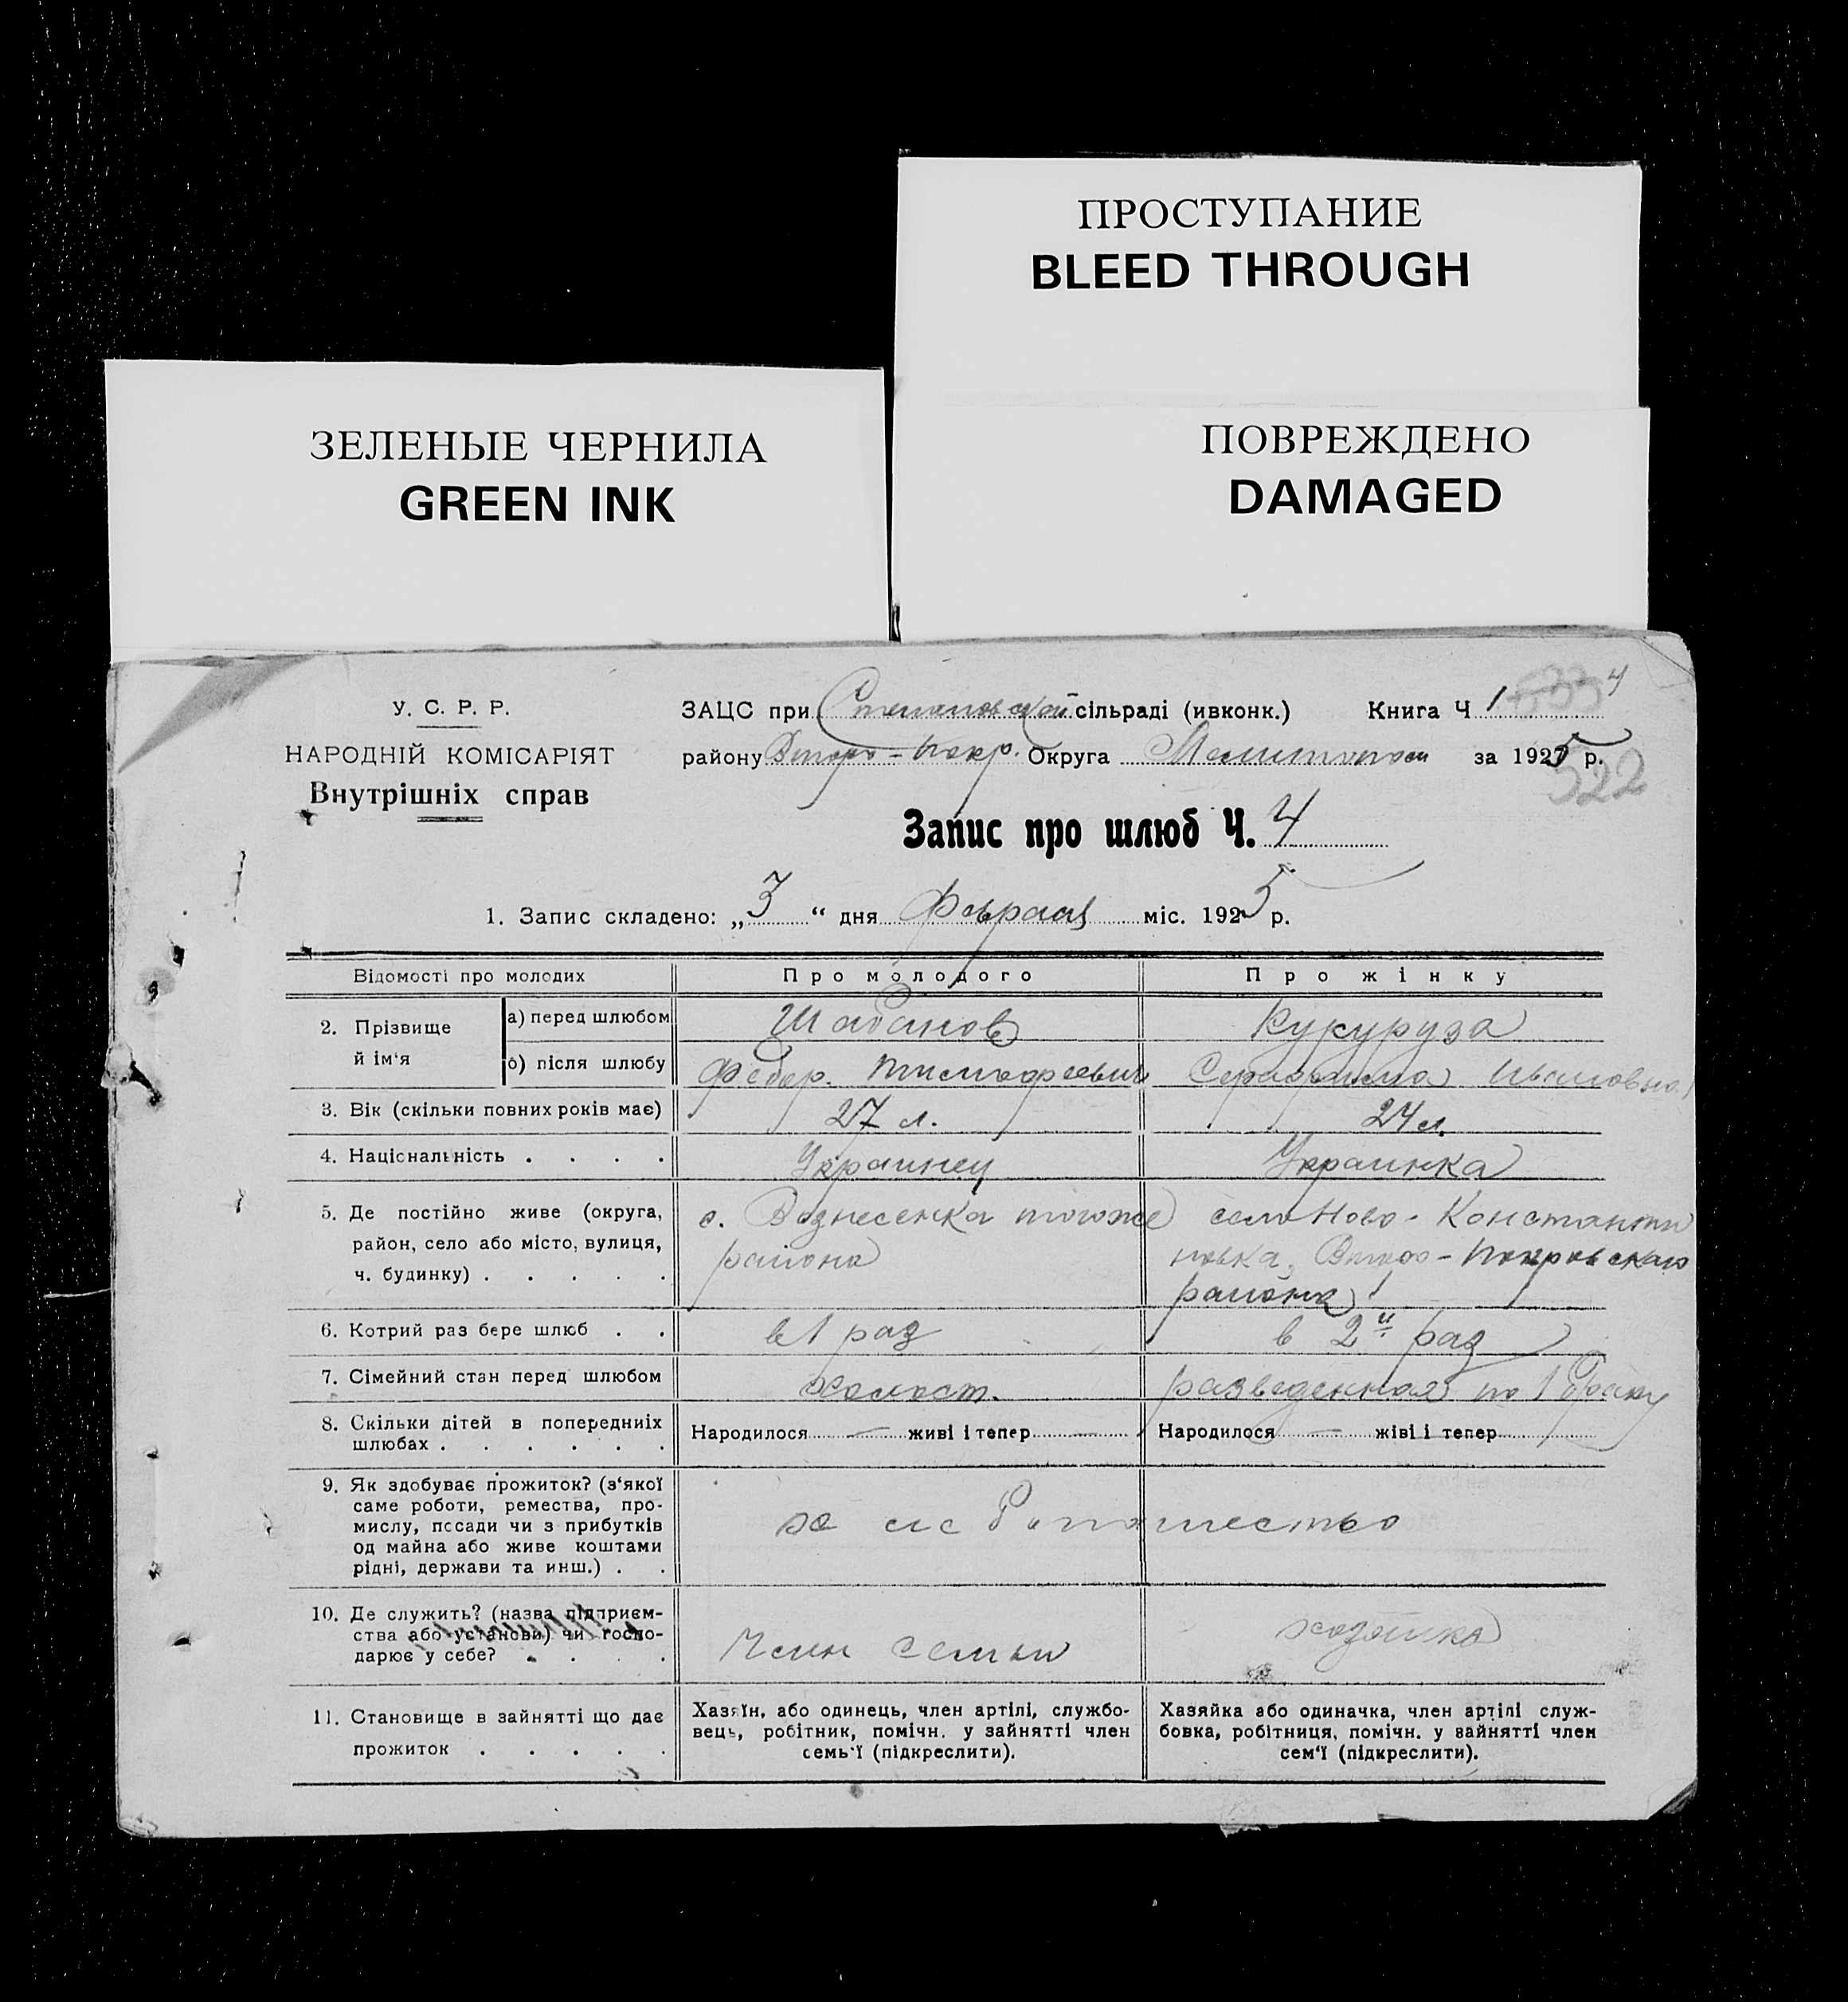 ПРОСТУПАНИЕ
BLEED THROUGH
ЗЕЛЕНЫЕ ЧЕРНИЛА
GREEN INK
ПОВРЕЖДЕНО
DAMAGED
У. С. Р. Р.
НАРОДНІЙ КОМІСАРІЯТ
Внутрішніх справ
ЗАЦС при Степановской сільраді (ивконк.) Книга Ч 1 4
району Второ-Покр. Округа за 1925 р.
522
Запис про шлюб Ч. 4
1. Запис складено: „3“ дня Февраля міс. 1925 р.
Відомості про молодих Про молодого Про жінку
2. Прізвище й ім'я
а) перед шлюбом Шабанов Кукуруза
б) після шлюбу Федор. Тимофеевич Серафима Ивановна
3. Вік (скільки повних років має) 27 л. 24 л.
4. Національність . . . . Украинец Украинка
5. Де постійно живе (округа, с. Вознесенка того же село Ново-Константи
район, село або місто, вулиця, района новка, Второ-Покровскаго
ч. будинку) . . . . . района
6. Котрий раз бере шлюб . . в 1 раз в 2й раз
7. Сімейний стан перед шлюбом холост. разведенная по 1 браку
8. Скільки дітей в попередниіх Народилося — живі і тепер — Народилося — жіві і тепер
шлюбах . . . . . .
9. Як здобуває прожиток? (з'якої
саме роботи, ремества, про-
мислу, посади чи з прибутків хлебопашество
од майна або живе коштами
рідні, держави та инш.) . .
10. Де служить? (назва підприєм-
ства або установи) чи госпо- хозяйка
дарює у себе? . . . . Член семьи
11. Становище в зайнятті що дає
прожиток . . . . .
Хазяїн, або одинець, член артілі, службо-
вець, робітник, помічн. у зайнятті член
семь'ї (підкреслити).
Хазяйка або одиначка, член артілі служ-
бовка, робітниця, помічн. у зайнятті член
сем'ї (підкреслити).